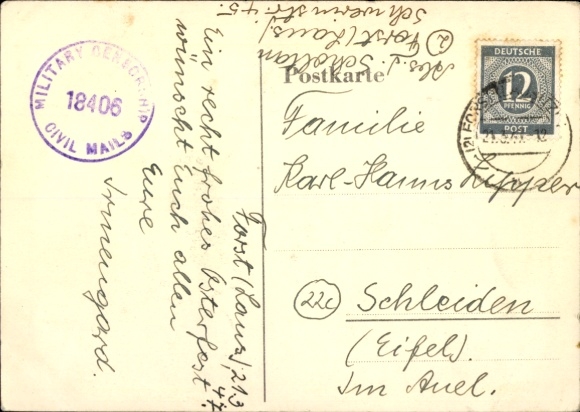 MILITARY CENSORSHIP
18406
CIVIL MAILS
Forst (Laus) 21.3.
47.
Ein recht frohes Osterfest
wünscht Euch allen
Eure
Irmengard.
Abs. J. Scholtan
(2) Forst (Laus)
Schwerinstr. 45.
Postkarte
DEUTSCHE
12
PFENNIG
POST
(2) FORST
Familie
Karl-Hanns Lipper
(22c) Schleiden
(Eifel).
Im Auel.